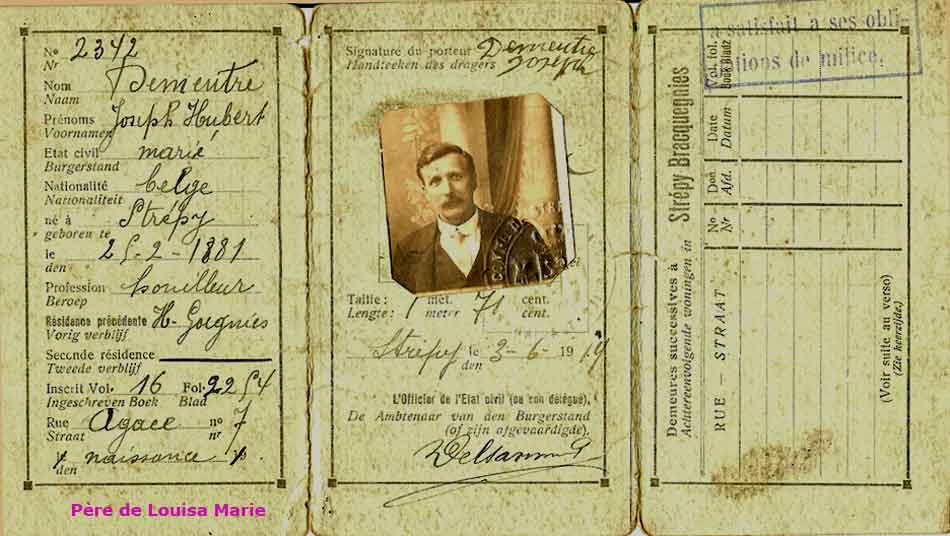 No 2342
Nr
Nom Dementre
Naam
Prénoms Joseph Hubert
Voornamen
Etat civil marié
Burgerstand
Nationalité belge
Nationaliteit
né à Strépy
geboren te
le 25-2-1881
den
Profession houilleur
Beroep
Résidence précédente H-Goegnies
Vorig verblijf
Seconde résidence
Tweede verblijf
Inscrit Vol. 16 Fol. 2254
Ingeschreven Boek Blad
Rue Agace no 7
Straat nr
den naissance
Père de Louisa Marie
Signature du porteur Dementre
Handteeken des dragers Joseph
Taille: 1 mèt. 71 cent.
Lengte: meter cent.
Strépy le 3-6-1919
den
L'Officier de l'Etat civil (ou son délégué),
De Ambtenaar van den Burgerstand
(of zijn afgevaardigde).
a satisfait a ses obli
tions de milice.
Demeures successives à
Achtereenvolgende woningen in
Strépy Bracquegnies
RUE — STRAAT
No
Nr
Don.
Afd.
Date
Datum
Vol. fol.
Boek Bladz
(Voir suite au verso)
(Zie keerzijde.)